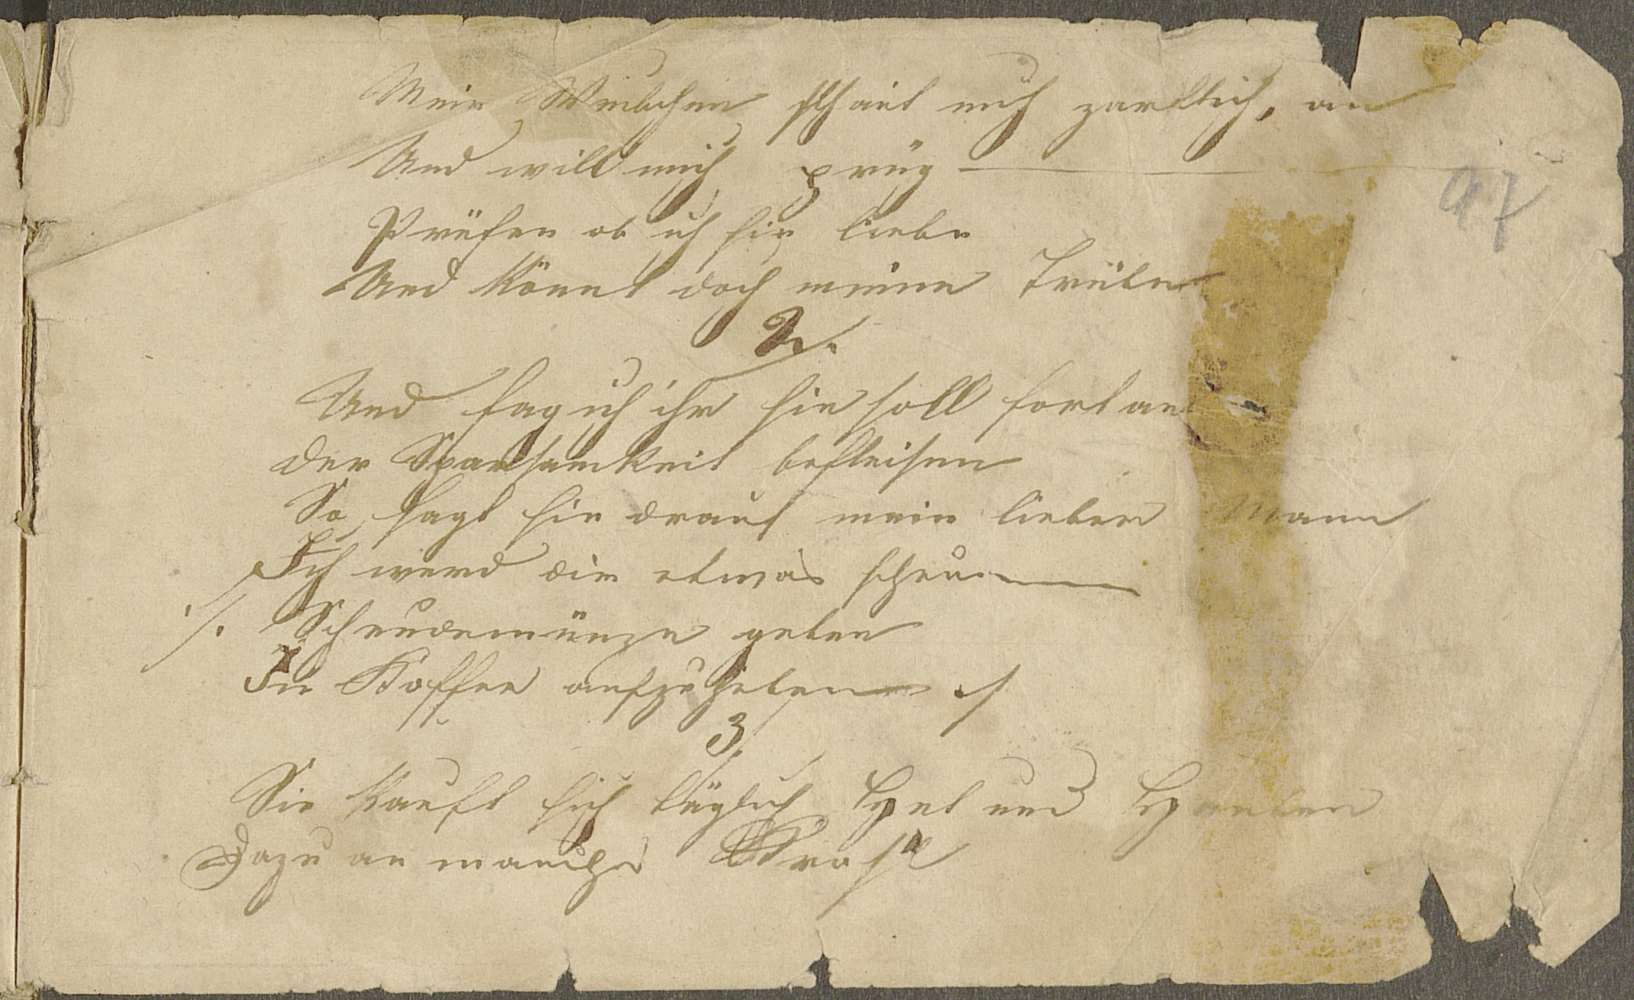 Mein Weibchen schaut mich zärtlich, an
Und will mich prüg —
Prüfen ob ich sie liebe
Und könnt doch meine Triebe
97
2.
Und sag ich ihr sie soll fortan
der Sparsamkeit befleisen
So sagt sie drauf mein lieber Mann
Ich werd dir etwas scheu —
./. Scheudemünze geben
In Koffer aufzuheben ./.
3.
Sie kauft sich täglich Hut und Hauben
Dazu an manchen